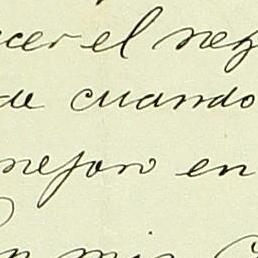 cer el neg
de cuando
mejoro en
n mis